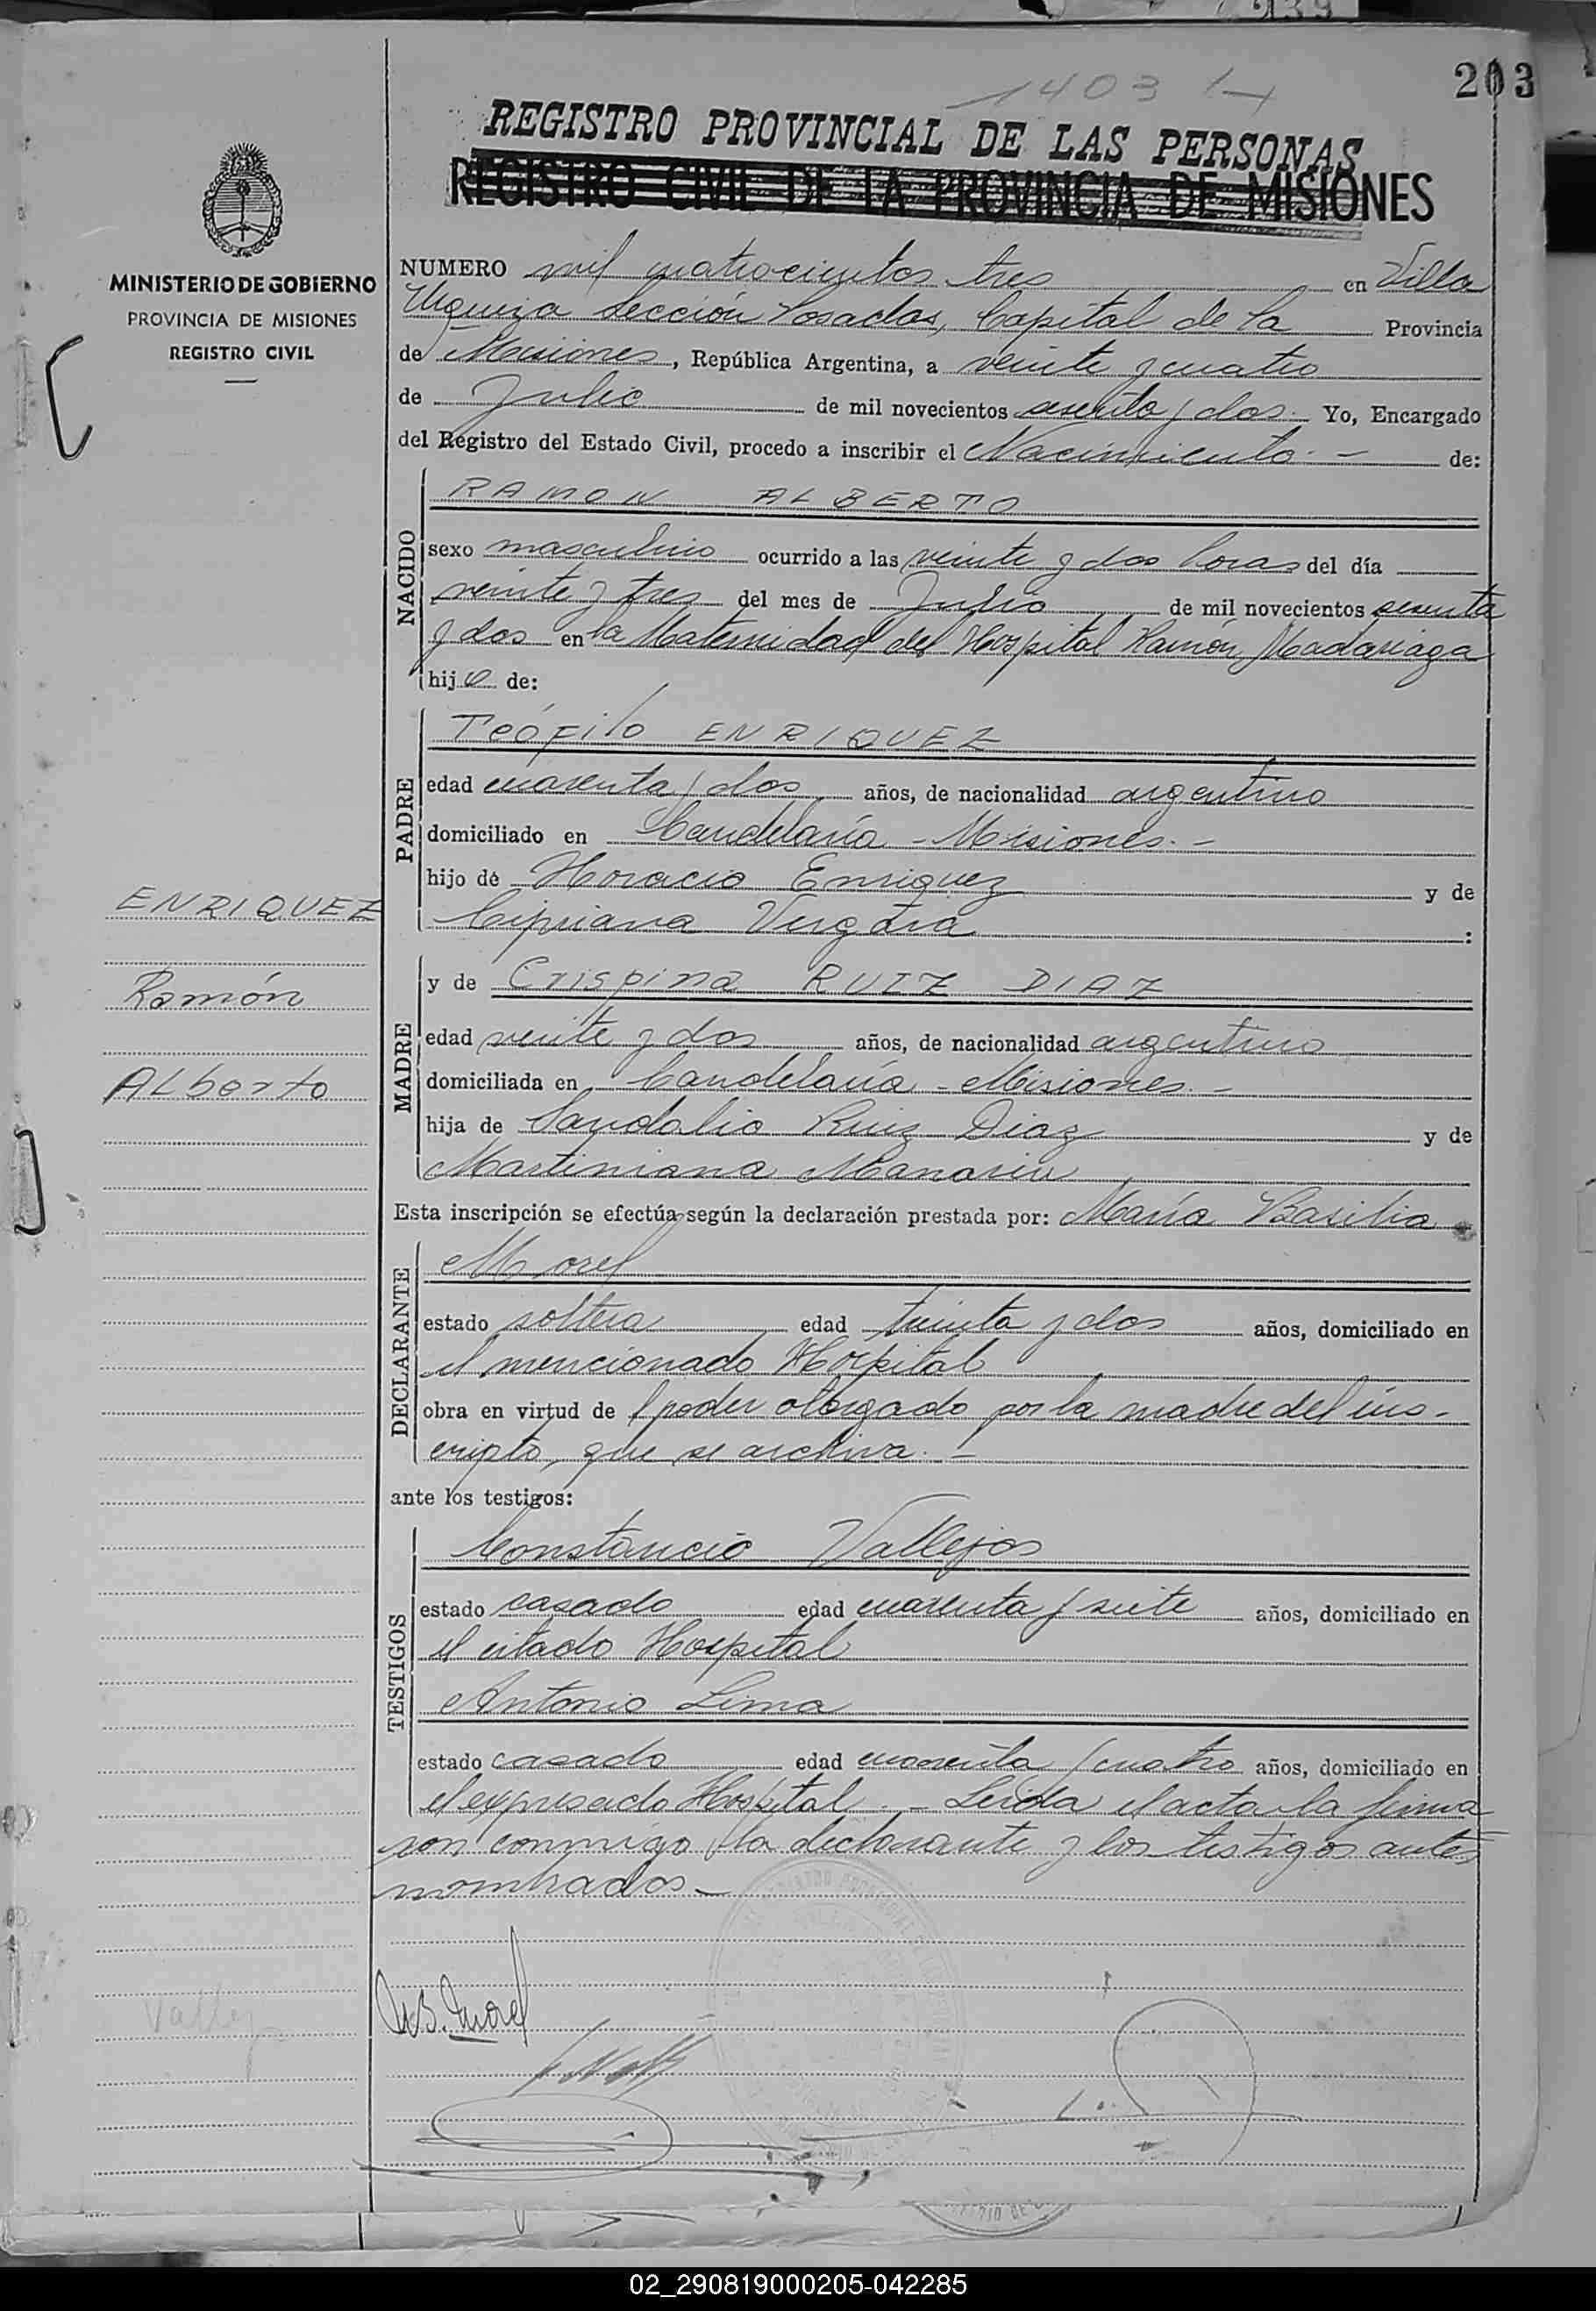 203
1403
REGISTRO PROVINCIAL DE LAS PERSONAS
REGISTRO CIVIL DE LA PROVINCIA DE MISIONES
MINISTERIO DE GOBIERNO
PROVINCIA DE MISIONES
REGISTRO CIVIL
NUMERO mil cuatrocientos tres en Villa
Urquiza Sección Posadas, Capital de la Provincia
de Misiones, República Argentina, a veinte y cuatro
de Julio de mil novecientos sesenta y dos. Yo, Encargado
del Registro del Estado Civil, procedo a inscribir el Nacimiento.- de:
NACIDO
RAMON ALBERTO
sexo masculino ocurrido a las veinte y dos horas del día
veinte y tres del mes de Julio de mil novecientos sesenta
y dos en la Maternidad del Hospital Ramón Madariaga
hijo de:
PADRE
Teófilo ENRIQUEZ
edad cuarenta y dos años, de nacionalidad argentino
domiciliado en Candelaria - Misiones.-
hijo de Horacio Enriquez y de
Cipriana Vergara :
MADRE
y de Crispina RUIZ DIAZ
edad veinte y dos años, de nacionalidad argentina
domiciliada en Candelaria - Misiones.-
hija de Sandalio Ruiz Diaz y de
Martiniana
ENRIQUEZ
Ramón
ALberto
Esta inscripción se efectúa según la declaración prestada por: María Basilia
DECLARANTE
Morel
estado soltera edad treinta y dos años, domiciliado en
el mencionado Hospital
obra en virtud de l poder otorgado por la madre del ins-
cripto, que se archiva.-
ante los testigos:
TESTIGOS
Constancio Vallejos
estado casado edad cuarenta y siete años, domiciliado en
el citado Hospital
Antonio Lima
estado casado edad cuarenta y cuatro años, domiciliado en
el expresado Hospital.- Leida el acta la firma
ron conmigo la declarante y los testigos antes
nombrados.-
M.B. Morel
02_290819000205-042285